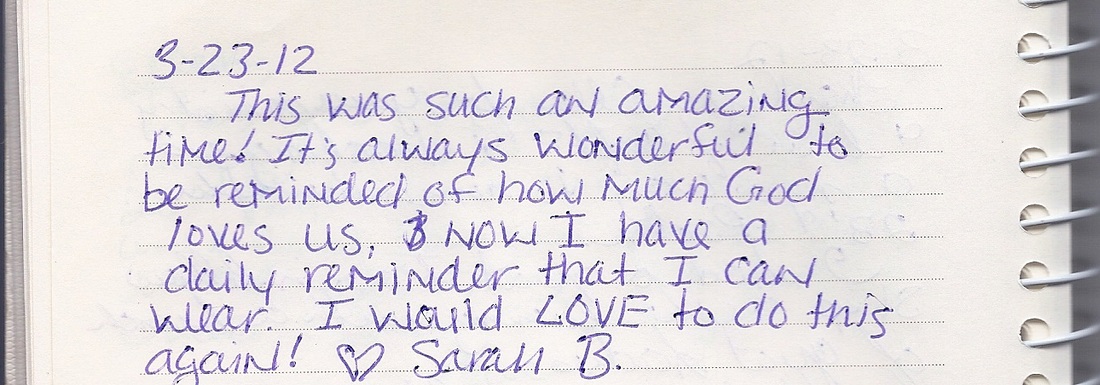 3-23-12
This was such an amazing
time! It's always wonderful to
be reminded of how much God
loves us, & now I have a
daily reminder that I can
wear. I would LOVE to do this
again! ♡ Sarah B.